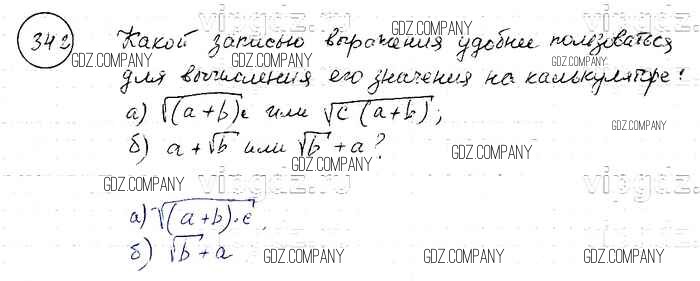 342 Какой записью выражения удобнее пользоваться
для вычисления его значения на калькуляторе:
а) √(a+b)c или √c(a+b);
б) a+√b или √b+a?
а) √(a+b)·c
б) √b+a
GDZ.COMPANY
GDZ.COMPANY
GDZ.COMPANY
GDZ.COMPANY
GDZ.COMPANY
GDZ.COMPANY
GDZ.COMPANY
GDZ.COMPANY
GDZ.COMPANY
GDZ.COMPANY
vipgdz.ru
vipgdz.ru